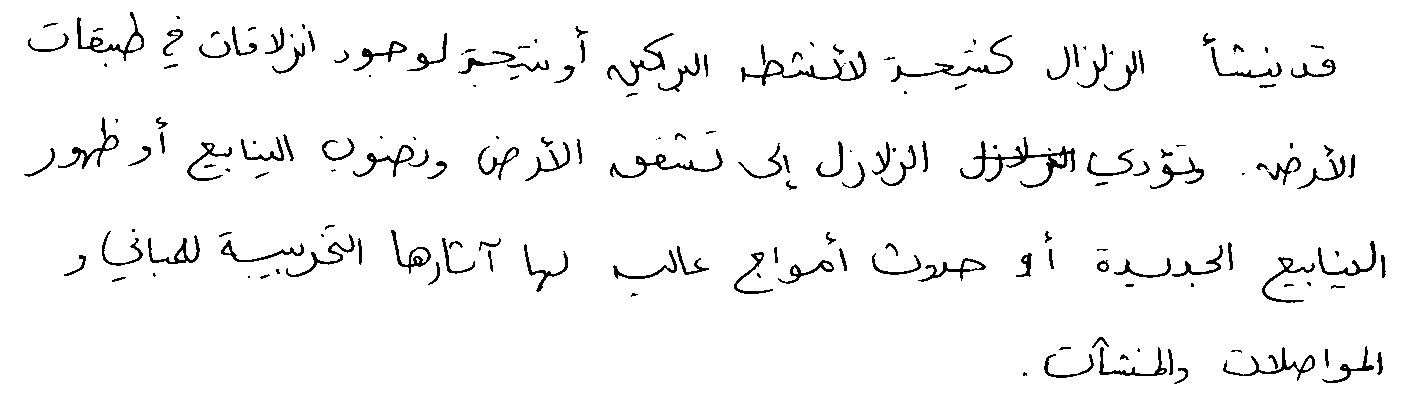 قد ينشأ الزلزال كنتيجة لأنشطه البراكين أو نتيجة لوجود انزلاقات في طبقات
الأرض. وتؤدي الزلازل إلى تشقق الأرض ونضوب الينابيع أو ظهور
الينابيع الجديدة أو حدوث أمواج عاليه لها آثارها التخريبية للمباني و
المواصلات والمنشآت.